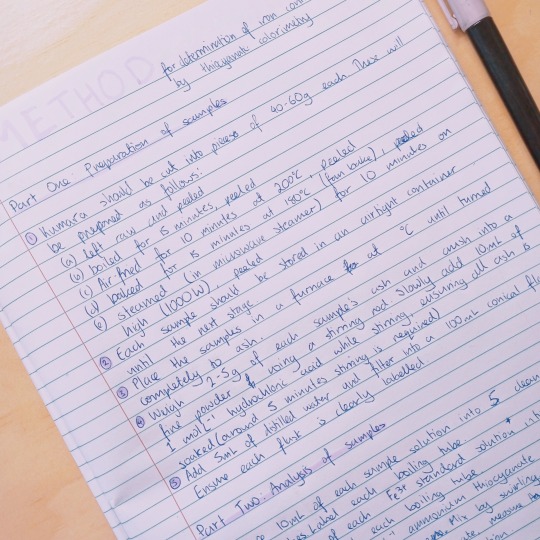 METHOD
for determination of iron con
by thiocyanate colorimetry
Part One: Preparation of samples
① Kumara should be cut into pieces of 40-60g each. These will
be prepared as follows:
(a) left raw and peeled
(b) boiled for 15 minutes, peeled
(c) Air fried for 10 minutes at 200°C, peeled
(d) baked for 15 minutes at 180°C (fan bake), peeled
(e) steamed (in microwave steamer) for 10 minutes on
high (1000W), peeled
② Each sample should be stored in an airtight container
until the next stage
③ Place the samples in a furnace at °C until turned
completely to ash.
④ Weigh 2.5g of each sample's ash and crush into a
fine powder using a stirring rod. Slowly add 10mL of
1 molL⁻¹ hydrochloric acid while stirring, ensuring all ash is
soaked (around 5 minutes stirring is required)
⑤ Add 5mL of distilled water and filter into a 100mL conical fl
Ensure each flask is clearly labelled
Part Two: Analysis of samples
10mL of each sample solution into 5 clean
Label each boiling tube.
of each Fe3+ standard solution int
each boiling tube
ammonium thiocyanate
Mix by swirling
measure